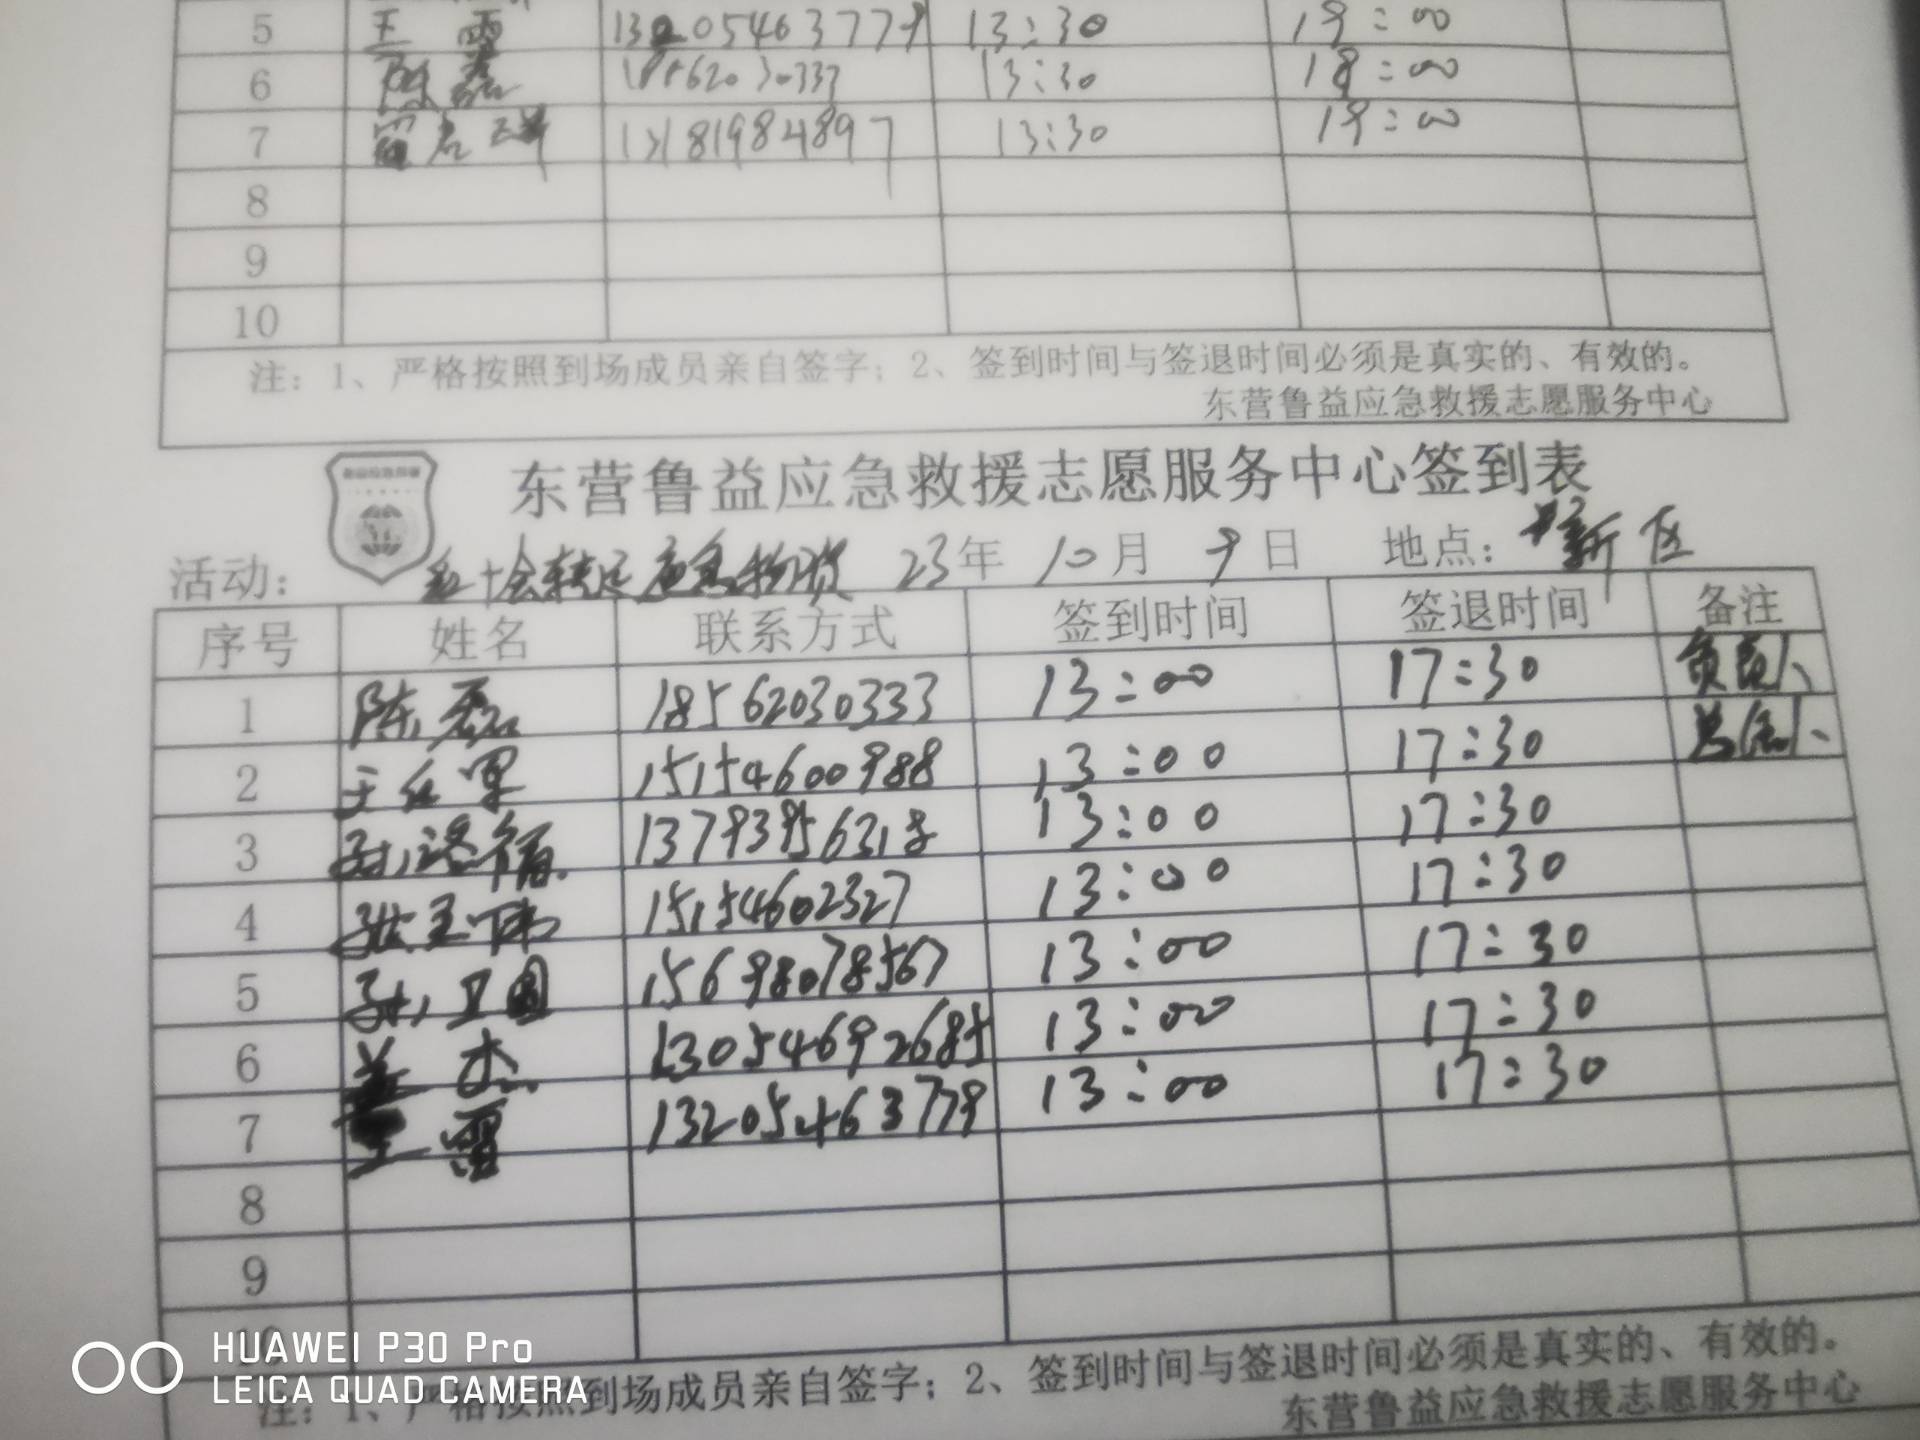 5 王 雷 13205463779 13:30 19:00
6 陈磊 18562030333 13:30 18:00
7 13181984897 13:30 19:00
8
9
10
注：1、严格按照到场成员亲自签字；2、签到时间与签退时间必须是真实的、有效的。
东营鲁益应急救援志愿服务中心
东营鲁益应急救援志愿服务中心签到表
活动： 红十会转运应急物资 23年 10月 9日 地点： 新区
序号 姓名 联系方式 签到时间 签退时间 备注
1 陈磊 18562030333 13:00 17:30 负责人
2 王红军 15154600988 13:00 17:30
3 13:00 17:30
4 张玉伟 15154602327 13:00 17:30
5 孙卫国 15698078567 13:00 17:30
6 杰 13054692685 13:00 17:30
7 王雷 13205463779 13:00 17:30
8
9
10
注：1、严格按照到场成员亲自签字；2、签到时间与签退时间必须是真实的、有效的。
东营鲁益应急救援志愿服务中心
HUAWEI P30 Pro
LEICA QUAD CAMERA